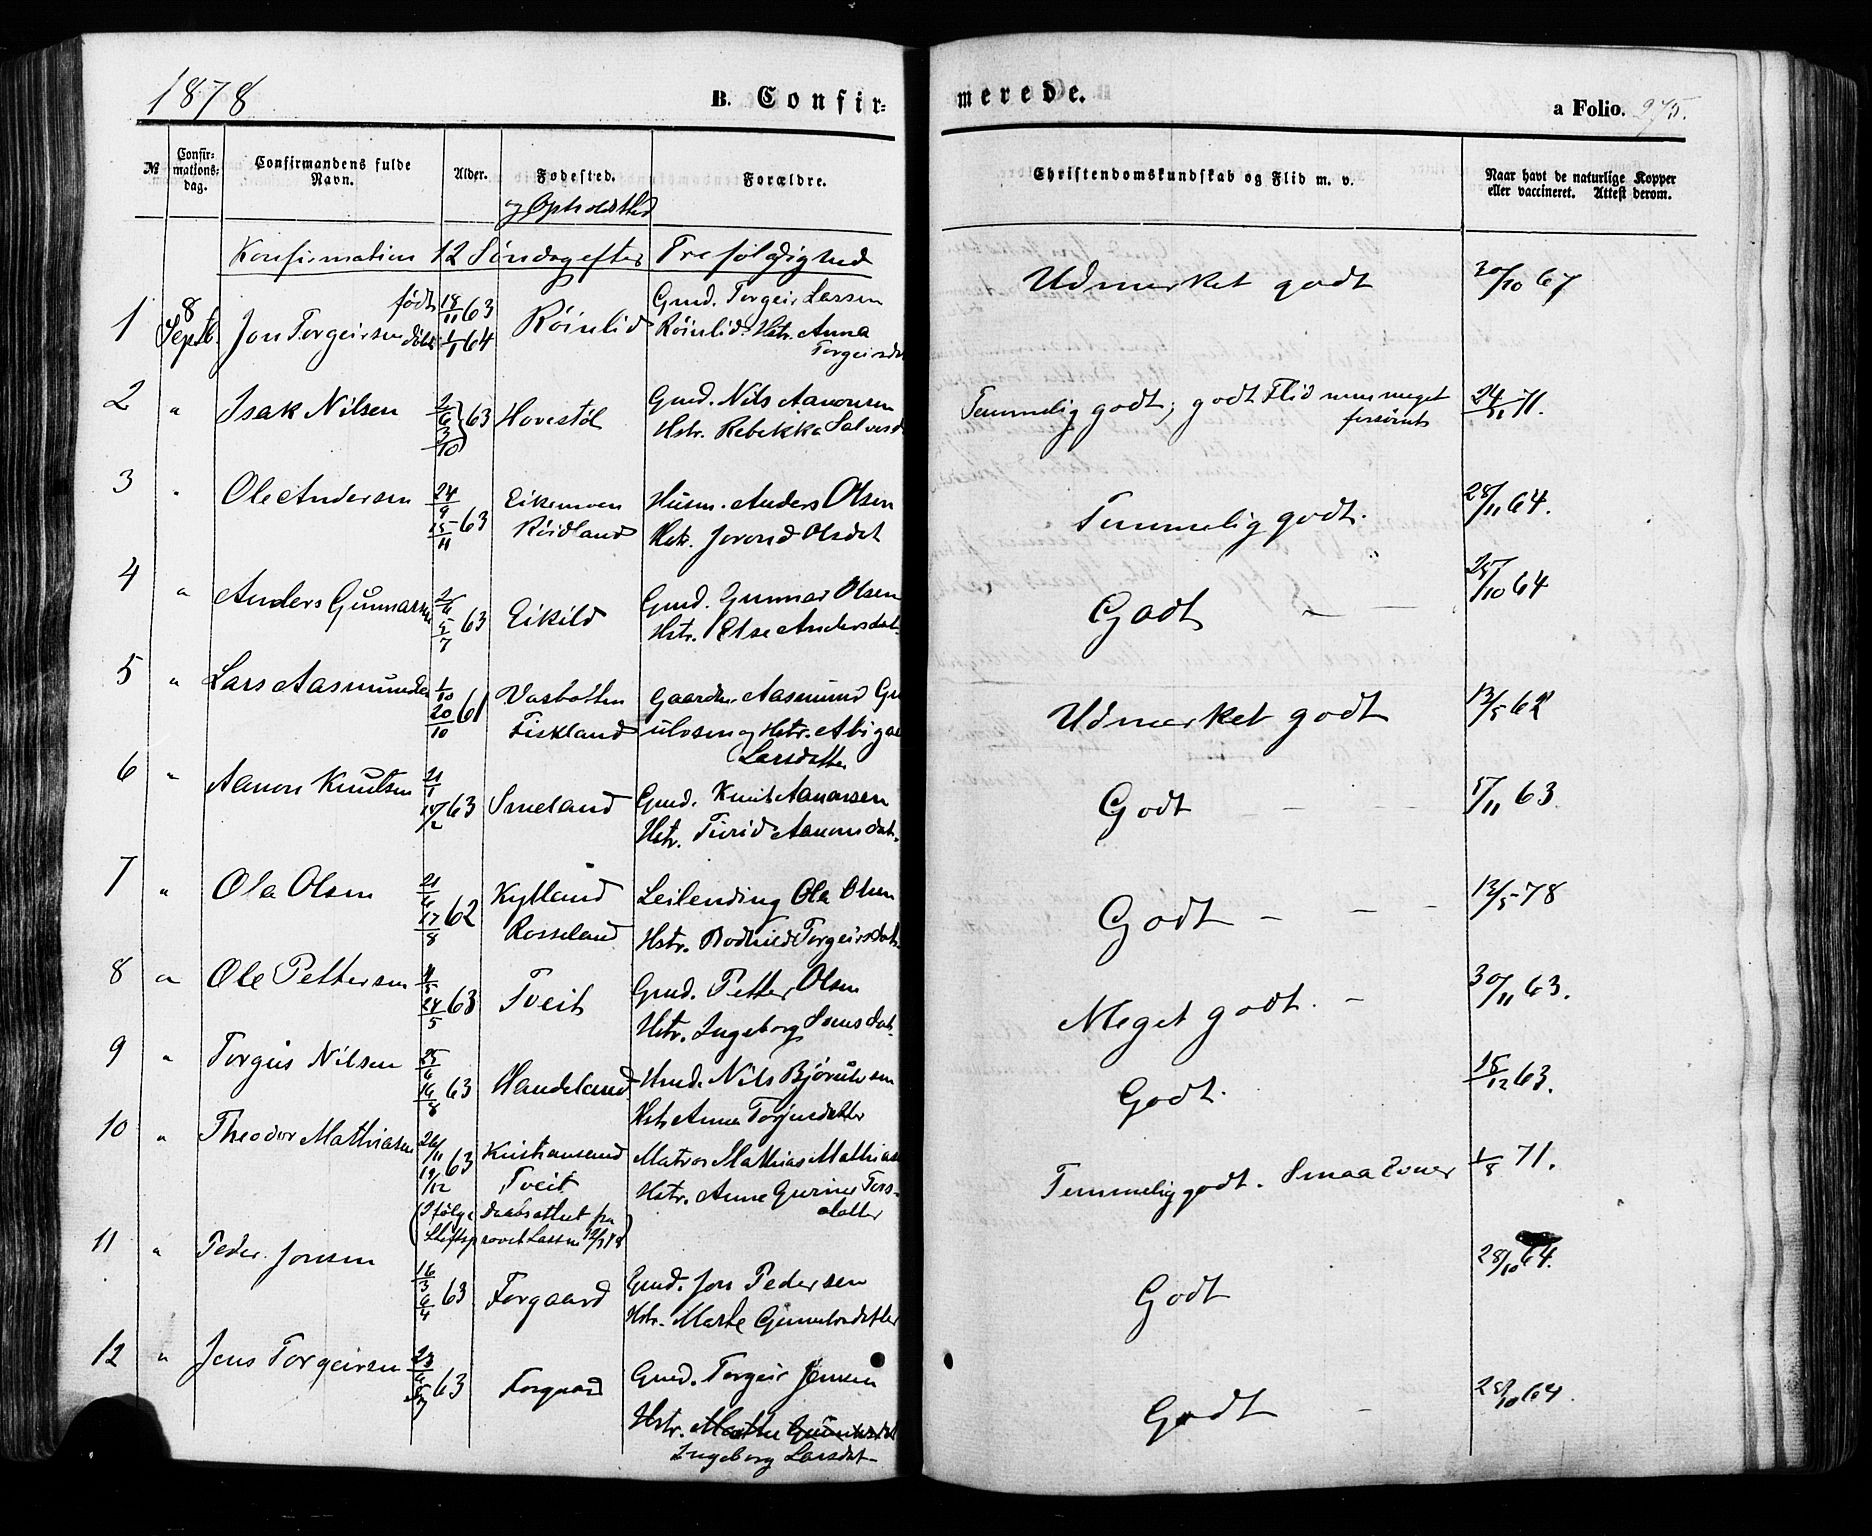 1878
B. Confir-
merede.
a Folio. 275.
№
Confir-
mations-
dag.
Confirmandens fulde
Navn.
Alder.
Fødested.
og Opholdsted
Forældre.
Christendomskundskab og Flid m. v.
Naar havt de naturlige Kopper
eller vaccineret. Attest derom.
Konfirmation 12 Søndag efter Trefoldighed
1 8 Septb. Jon Torgeirsen født 18/11 63 døbt 1/1 64 Röinlid Gmd. Torgeir Larsen
Röinlid Hstr. Anna
Torgeirsdt
Udmerket godt 30/10 67
2 " Isak Nilsen 2/6 3/10 63 Hovestöl Gmd. Nils Aanonsen
Hstr. Rebekka Salvesd
Temmelig godt; godt Flid men meget
forsömt 24/11 71.
3 " Ole Andersen 24/9 15/11 63 Eikemoen
Röidland
Husm. Anders Olsen
Hstr. Jorond Olsdat
Temmelig godt. 28/11 64.
4 " Anders Gunnarsen 2/6 5/7 63 Eikild Gmd. Gunnar Olsen
Hstr. Else Andersdat.
Godt — — 25/10 64
5 " Lars Aasmundsen 1/10 20/10 61 Vasbotten
Fiskland
Gaardm. Aasmund Gu
ulvsen og Hstr. Abigael
Larsdatter
Udmerket godt 13/5 62
6 " Aanon Knutsen 21/1 15/2 63 Smeland Gmd. Knut Aanonsen
Hstr. Turid Aanonsdat.
Godt — — 5/11 63.
7 " Ola Olsen 21/6 17/8 62 Kylland
Rosseland
Leilending Ola Olsen
Hstr. Bodhild Torgeirsdat.
Godt — — — 13/5 78
8 " Ole Pettersen 4/5 24/5 63 Tveit Gmd. Petter Olsen
Hstr. Ingeborg Jensdat.
Meget godt. — 30/11 63.
9 " Torgus Nilsen 25/6 16/8 63 Handeland Gmd. Nils Björulvsen
Hstr Anna Torjusdatter
Godt. 18/12 63.
10 " Theodor Mathiasen 26/11 19/12 63 Kristiansand
Tveit
Matros Mathias Mathias
Hstr. Anne Gurine Tors-
datter
(Ifølge Daabsattest fra
Stiftsprovst Lassen 12/3 78)
Temmelig godt. Smaa Evner 1/8 71.
11 " Peder Jonsen 16/3 6/4 63 Forgaard Gmd. Jon Pedersen
Hstr. Marte Gunvorsdatter
Godt 28/10 64.
12 " Jens Torgeirsen 23/6 5/7 63 Forgaard Gmd. Torgeir Jensen
Hstr. Marthe Gunvorsdat
Ingeborg Larsdat
Godt — 28/10 64.